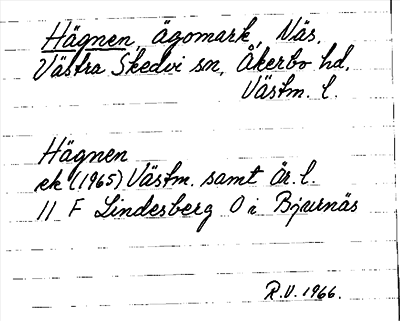 Hägnen, ägomark, Näs,
Västra Skedvi sn, Åkerbo hd,
Västm. l.
Hägnen
ek (1965) Västm. samt Ör. l.
11 F Lindesberg O i Bjurnäs
R.V. 1966.